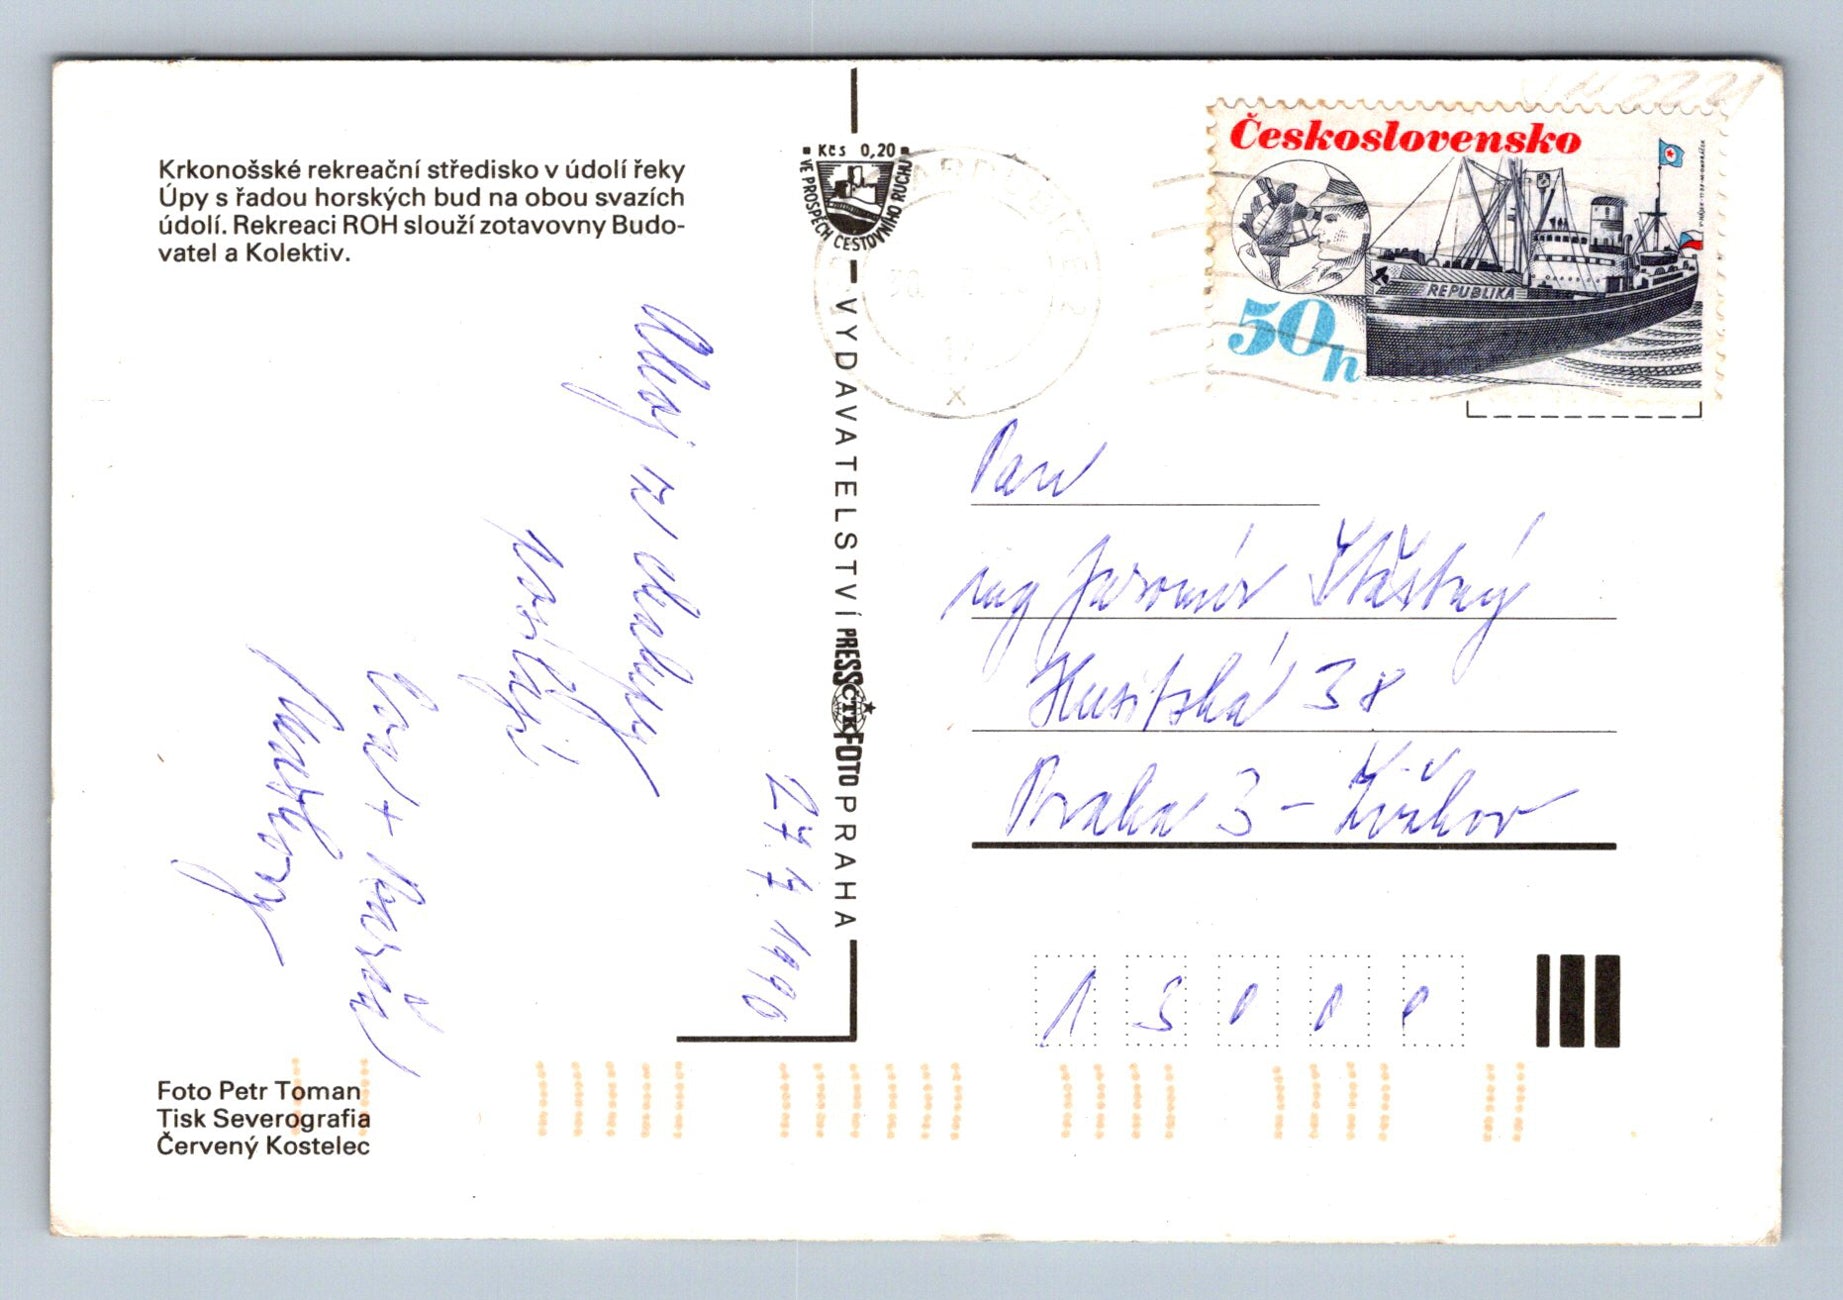 Krkonošské rekreační středisko v údolí řeky
Úpy s řadou horských bud na obou svazích
údolí. Rekreaci ROH slouží zotavovny Budo-
vatel a Kolektiv.
Ahoj z chalupy
posílají
Eva + Mareš
27.7.1990
Foto Petr Toman
Tisk Severografia
Červený Kostelec
Kčs 0,20
VE PROSPĚCH CESTOVNÍHO RUCHU
VYDAVATELSTVÍ PRESSFOTO PRAHA
ČTK
Československo
REPUBLIKA
50h
Pan
ing Jaromír Šťastný
Husitská 38
Praha 3 - Žižkov
13000